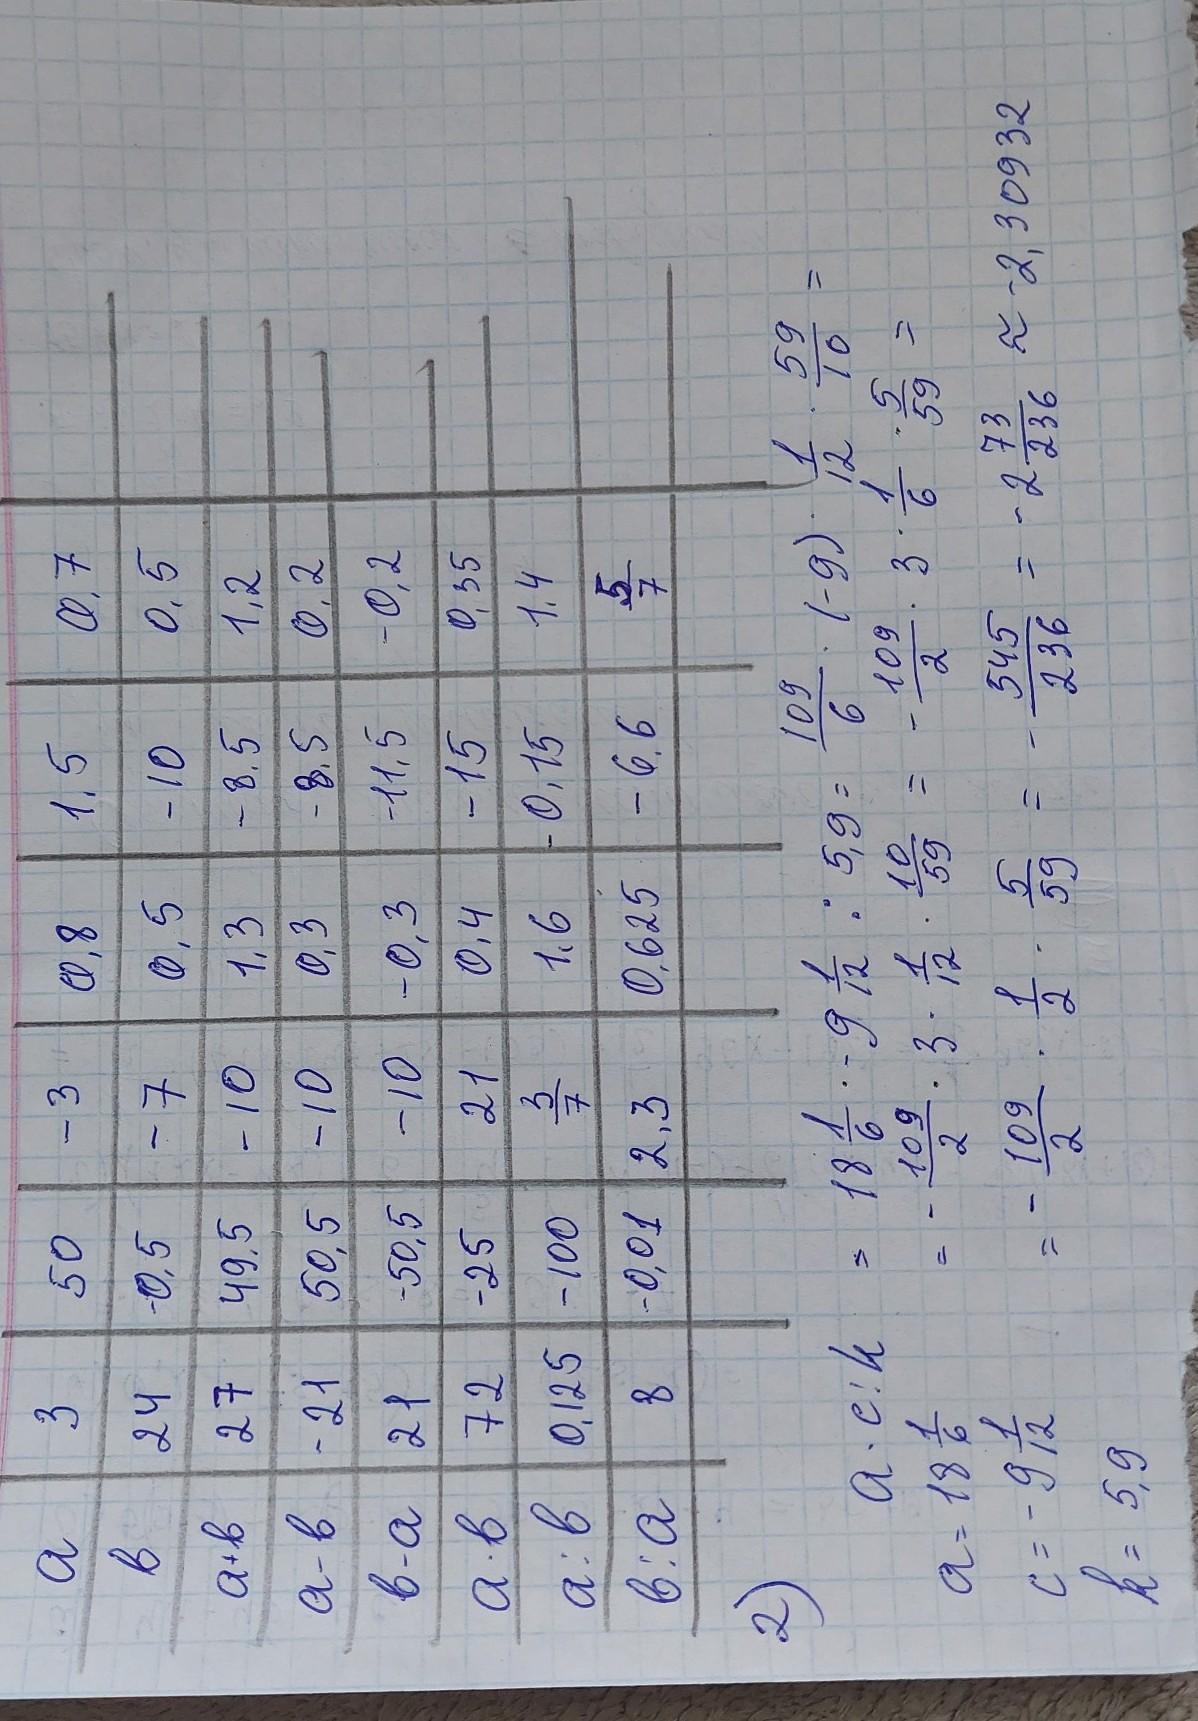 a 3 50 -3 0,8 1,5 0,7
в 24 -0,5 -7 0,5 -10 0,5
a+в 27 49,5 -10 1,3 -8,5 1,2
a-в -21 50,5 -10 0,3 -8,5 0,2
в-a 21 -50,5 -10 -0,3 -11,5 -0,2
a·в 72 -25 21 0,4 -15 0,35
a:в 0,125 -100 3/7 1,6 -0,15 1,4
в:a 8 -0,01 2,3 0,625 -6,6 5/7
2) a·c:k = 18 1/6 · -9 1/12 : 5,9 = 109/6 · (-9) · 1/12 · 59/10 =
a = 18 1/6 = -109/2 · 3 · 1/12 · 10/59 = -109/2 · 3 · 1/6 · 5/59 =
c = -9 1/12 = -109/2 · 1/2 · 5/59 = -545/236 = -2 73/236 ≈ -2,30932
k = 5,9